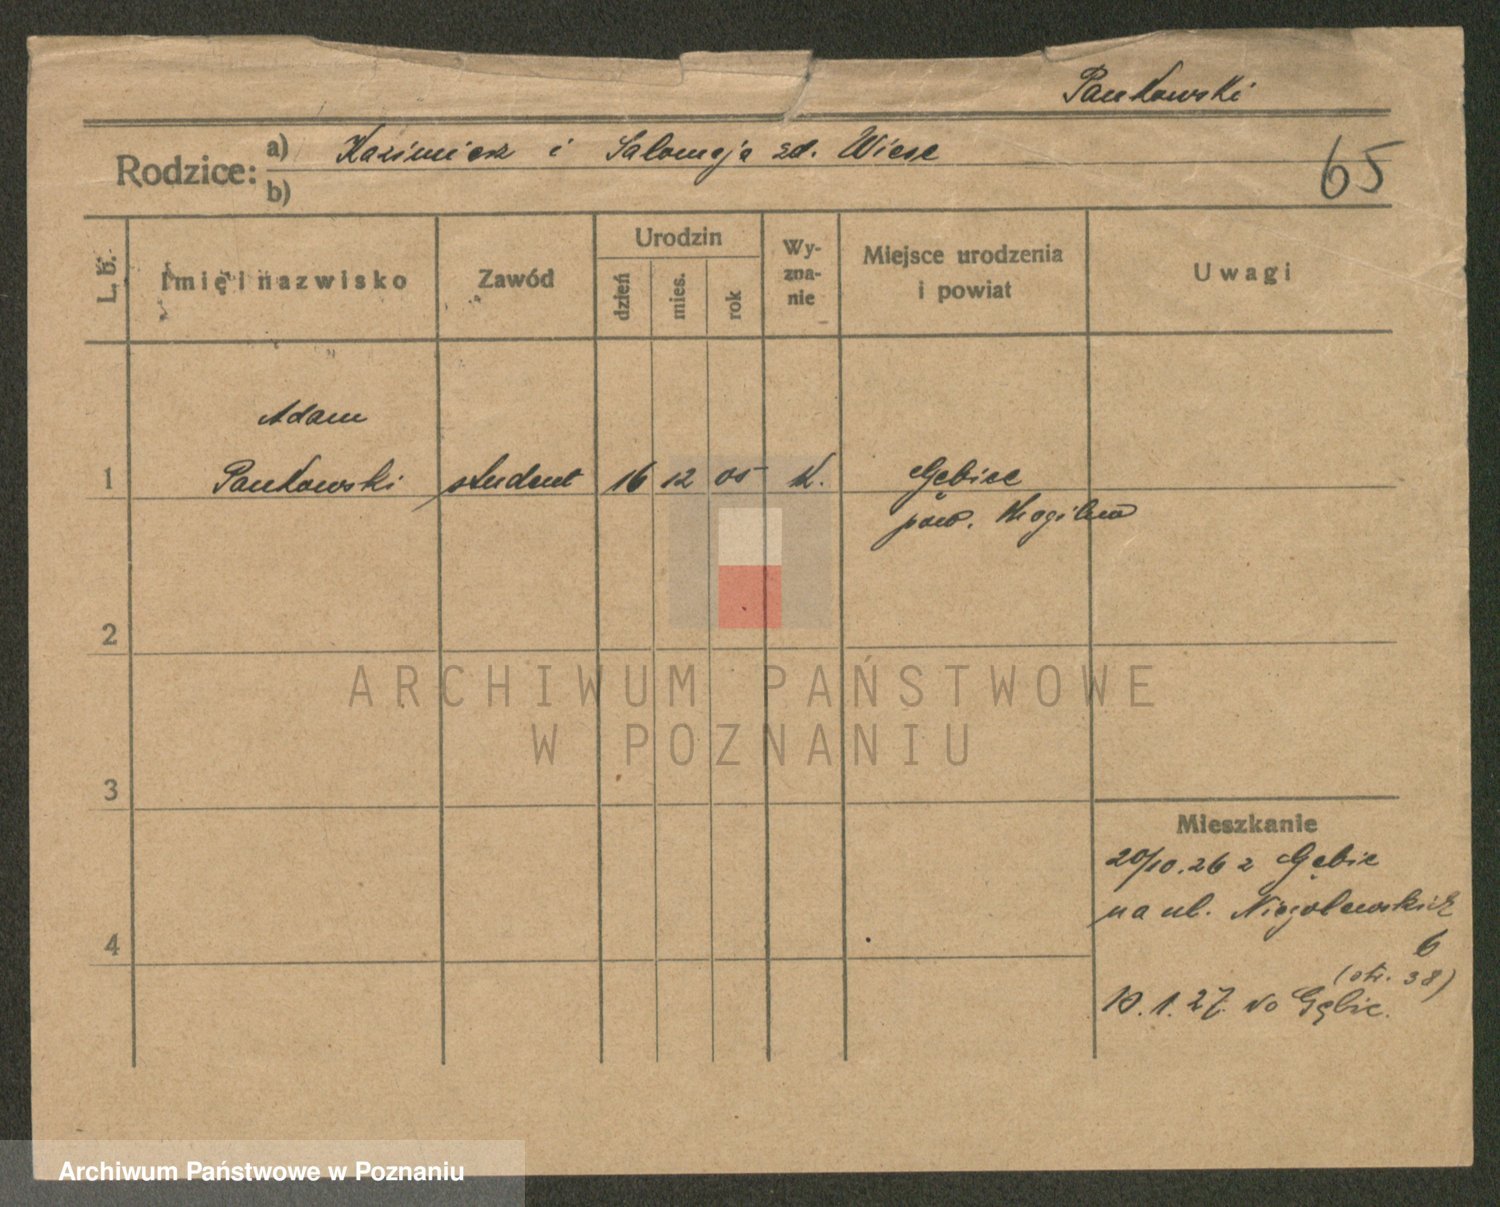 Pankowski
Rodzice:
a) Kazimierz i Salomeja zd. Wiese
b)
65
L. b.
Imię i nazwisko
Zawód
Urodzin
dzień
mies.
rok
Wy-
zna-
nie
Miejsce urodzenia
i powiat
Uwagi
Adam
1 Pankowski student 16 12 05 K. Gębice
pow. Mogilno
2
ARCHIWUM PAŃSTWOWE
W POZNANIU
3
Mieszkanie
20/10.26 z Gębic
na ul. Niegolewskich
6
(str. 38)
10.1.27. do Gębic.
4
Archiwum Państwowe w Poznaniu